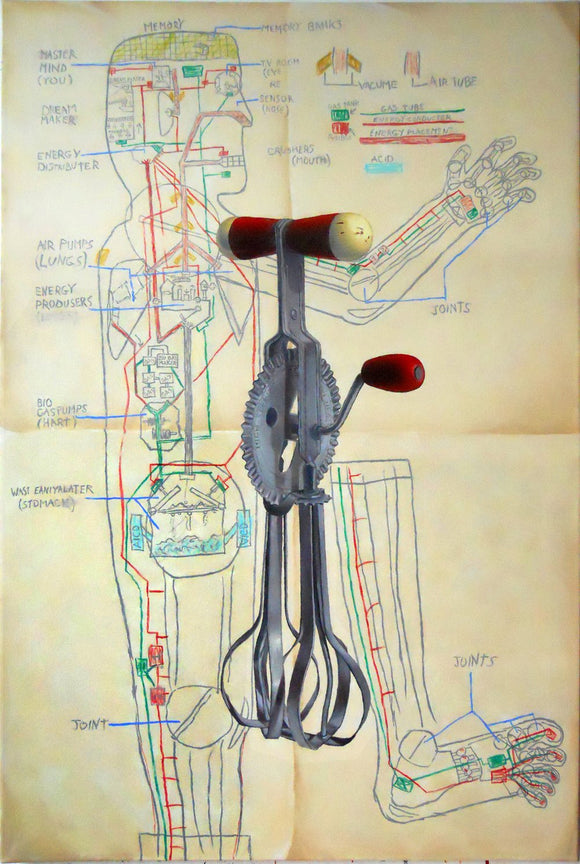 MEMORY
MEMORY BANKS
MASTER
MIND
(YOU)
T.V ROOM
(EYE
SENSOR
(NOSE)
DREAM
MAKER
VACUME
AIR TUBE
GAS TUBE
ENERGY CONDUCTER
ENERGY PLACEMENT
ACID
ENERGY
DISTRIBUTER
CRUSHERS
(MOUTH)
AIR PUMPS
(LUNGS)
ENERGY
PRODUSERS
JOINTS
BIO
GASPUMPS
(HART)
(STOMACK)
ACID
ACID
JOINTS
JOINT